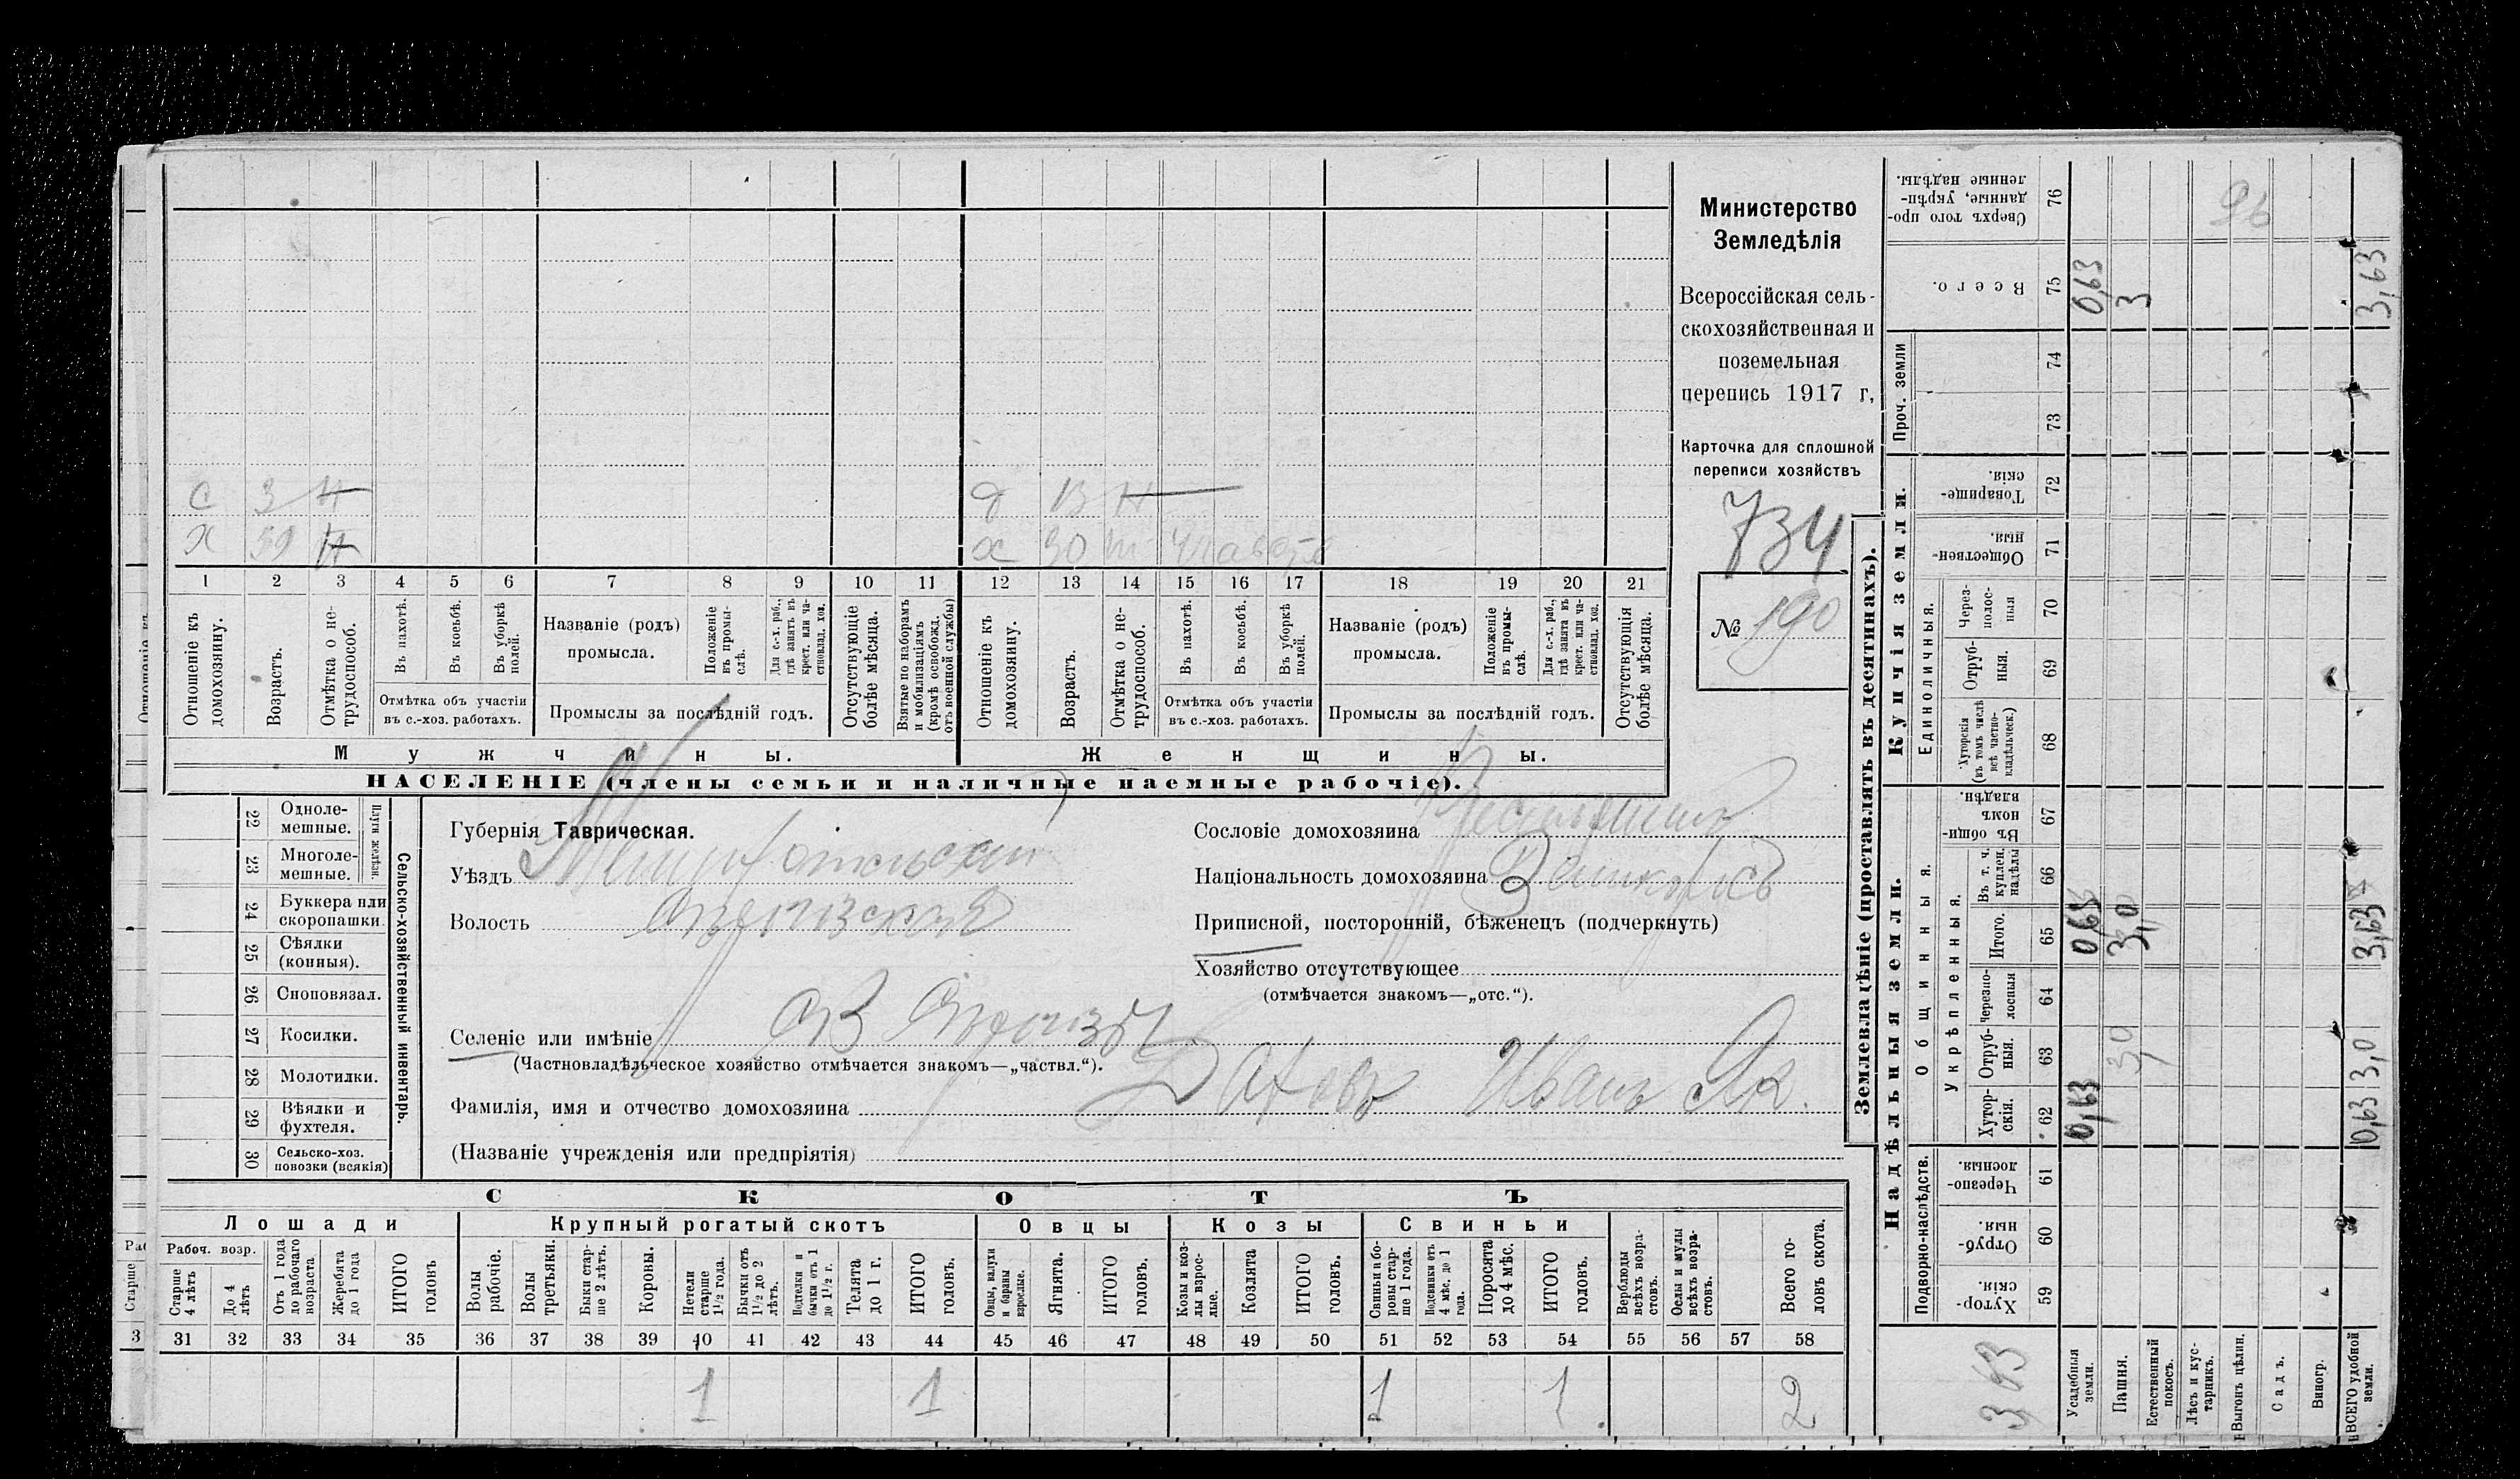 Министерство
Земледѣлія
Всероссійская сель-
скохозяйственная и
поземельная
перепись 1917 г,
Карточка для сплошной
переписи хозяйствъ
734
№ 190
С 3 Н
Х 59 Н
д 13 Н
х 30
1 2 3 4 5 6 7 8 9 10 11 12 13 14 15 16 17 18 19 20 21
Отношеніе къ домохозяину.
Возрастъ.
Отмѣтка о не-трудоспособ.
Въ пахотѣ.
Въ косьбѣ.
Въ уборкѣ полей.
Отмѣтка объ участіи
въ с.-хоз. работахъ.
Названіе (родъ)
промысла.
Положеніе въ промы-слѣ.
Для с.-х. раб., гдѣ занятъ въ крест. или ча-стновлад. хоз.
Промыслы за послѣдній годъ.
Отсутствующіе болѣе мѣсяца.
Взятые по наборамъ и мобилизаціямъ (кромѣ освобожд. отъ военной службы)
Отношеніе къ домохозяину.
Возрастъ.
Отмѣтка о не-трудоспособ.
Въ пахотѣ.
Въ косьбѣ.
Въ уборкѣ полей.
Отмѣтка объ участіи
въ с.-хоз. работахъ.
Названіе (родъ)
промысла.
Положеніе въ промы-слѣ.
Для с.-х. раб., гдѣ занята въ крест. или ча-стновлад. хоз.
Промыслы за послѣдній годъ.
Отсутствующія болѣе мѣсяца.
Мужчины.
Женщины.
НАСЕЛЕНІЕ (члены семьи и наличные наемные рабочіе).
22 Одноле-мешные.
23 Многоле-мешные.
Плуги желѣзн.
24 Буккера или скоропашки.
25 Сѣялки (конныя).
26 Сноповязал.
27 Косилки.
28 Молотилки.
29 Вѣялки и фухтеля.
30 Сельско-хоз. повозки (всякія)
Сельско-хозяйственный инвентарь.
Губернія Таврическая.
Уѣздъ
Волость
Селеніе или имѣніе
(Частновладѣльческое хозяйство отмѣчается знакомъ—„частвл.“).
Фамилія, имя и отчество домохозяина Иванъ Як.
(Названіе учрежденія или предпріятія)
Сословіе домохозяина
Національность домохозяина
Приписной, посторонній, бѣженецъ (подчеркнуть)
Хозяйство отсутствующее
(отмѣчается знакомъ—„отс.“).
СКОТЪ
Лошади
Крупный рогатый скотъ
Овцы
Козы
Свиньи
Рабоч. возр.
Старше 4 лѣтъ
До 4 лѣтъ
Отъ 1 года до рабочаго возраста
Жеребята до 1 года
ИТОГО головъ
Волы рабочіе.
Волы третьяки.
Быки стар-ше 2 лѣтъ.
Коровы.
Нетели старше 1½ года.
Бычки отъ 1½ до 2 лѣтъ.
Подтелки и бычки отъ 1 до 1½ г.
Телята до 1 г.
ИТОГО головъ.
Овцы, валухи и бараны взрослые.
Ягнята.
ИТОГО головъ.
Козы и коз-лы взрос-лые.
Козлята
ИТОГО головъ.
Свиньи и бо-ровы стар-ше 1 года.
Подсвинки отъ 4 мѣс. до 1 года.
Поросята до 4 мѣс.
ИТОГО головъ.
Верблюды всѣхъ возра-стовъ.
Ослы и мулы всѣхъ возра-стовъ.
Всего го-ловъ скота.
31 32 33 34 35 36 37 38 39 40 41 42 43 44 45 46 47 48 49 50 51 52 53 54 55 56 57 58
1 1 1 1 2
Землевладѣніе (проставлять въ десятинахъ).
Надѣльныя земли.
Купчія земли.
Проч. земли
Подворно-наслѣдств.
Общинныя.
Укрѣпленныя.
Единоличныя.
Хутор-скія. 59
Отруб-ныя. 60
Черезпо-лосныя. 61
Хутор-скія. 62
Отруб-ныя. 63
Черезпо-лосныя 64
Итого. 65
Въ т. ч. куплен. надѣлы 66
Въ общи-номъ владѣн. 67
Хуторскія (въ томъ числѣ всѣ частно-владѣльческ.) 68
Отруб-ныя. 69
Через-полос-ныя 70
Обществен-ныя. 71
Товарище-скія. 72
73
74
Всего. 75
Сверхъ того про-данные, укрѣп-ленные надѣлы. 76
Усадебныя земли. 0,63 0,63 0,63
Пашня. 3,0 3,0 3
Естественный покосъ.
Лѣсъ и кус-тарникъ.
Выгонъ цѣлин.
Садъ.
Виногр.
ВСЕГО удобной земли. 0,63 3,0 3,63 3,63
3,63
96